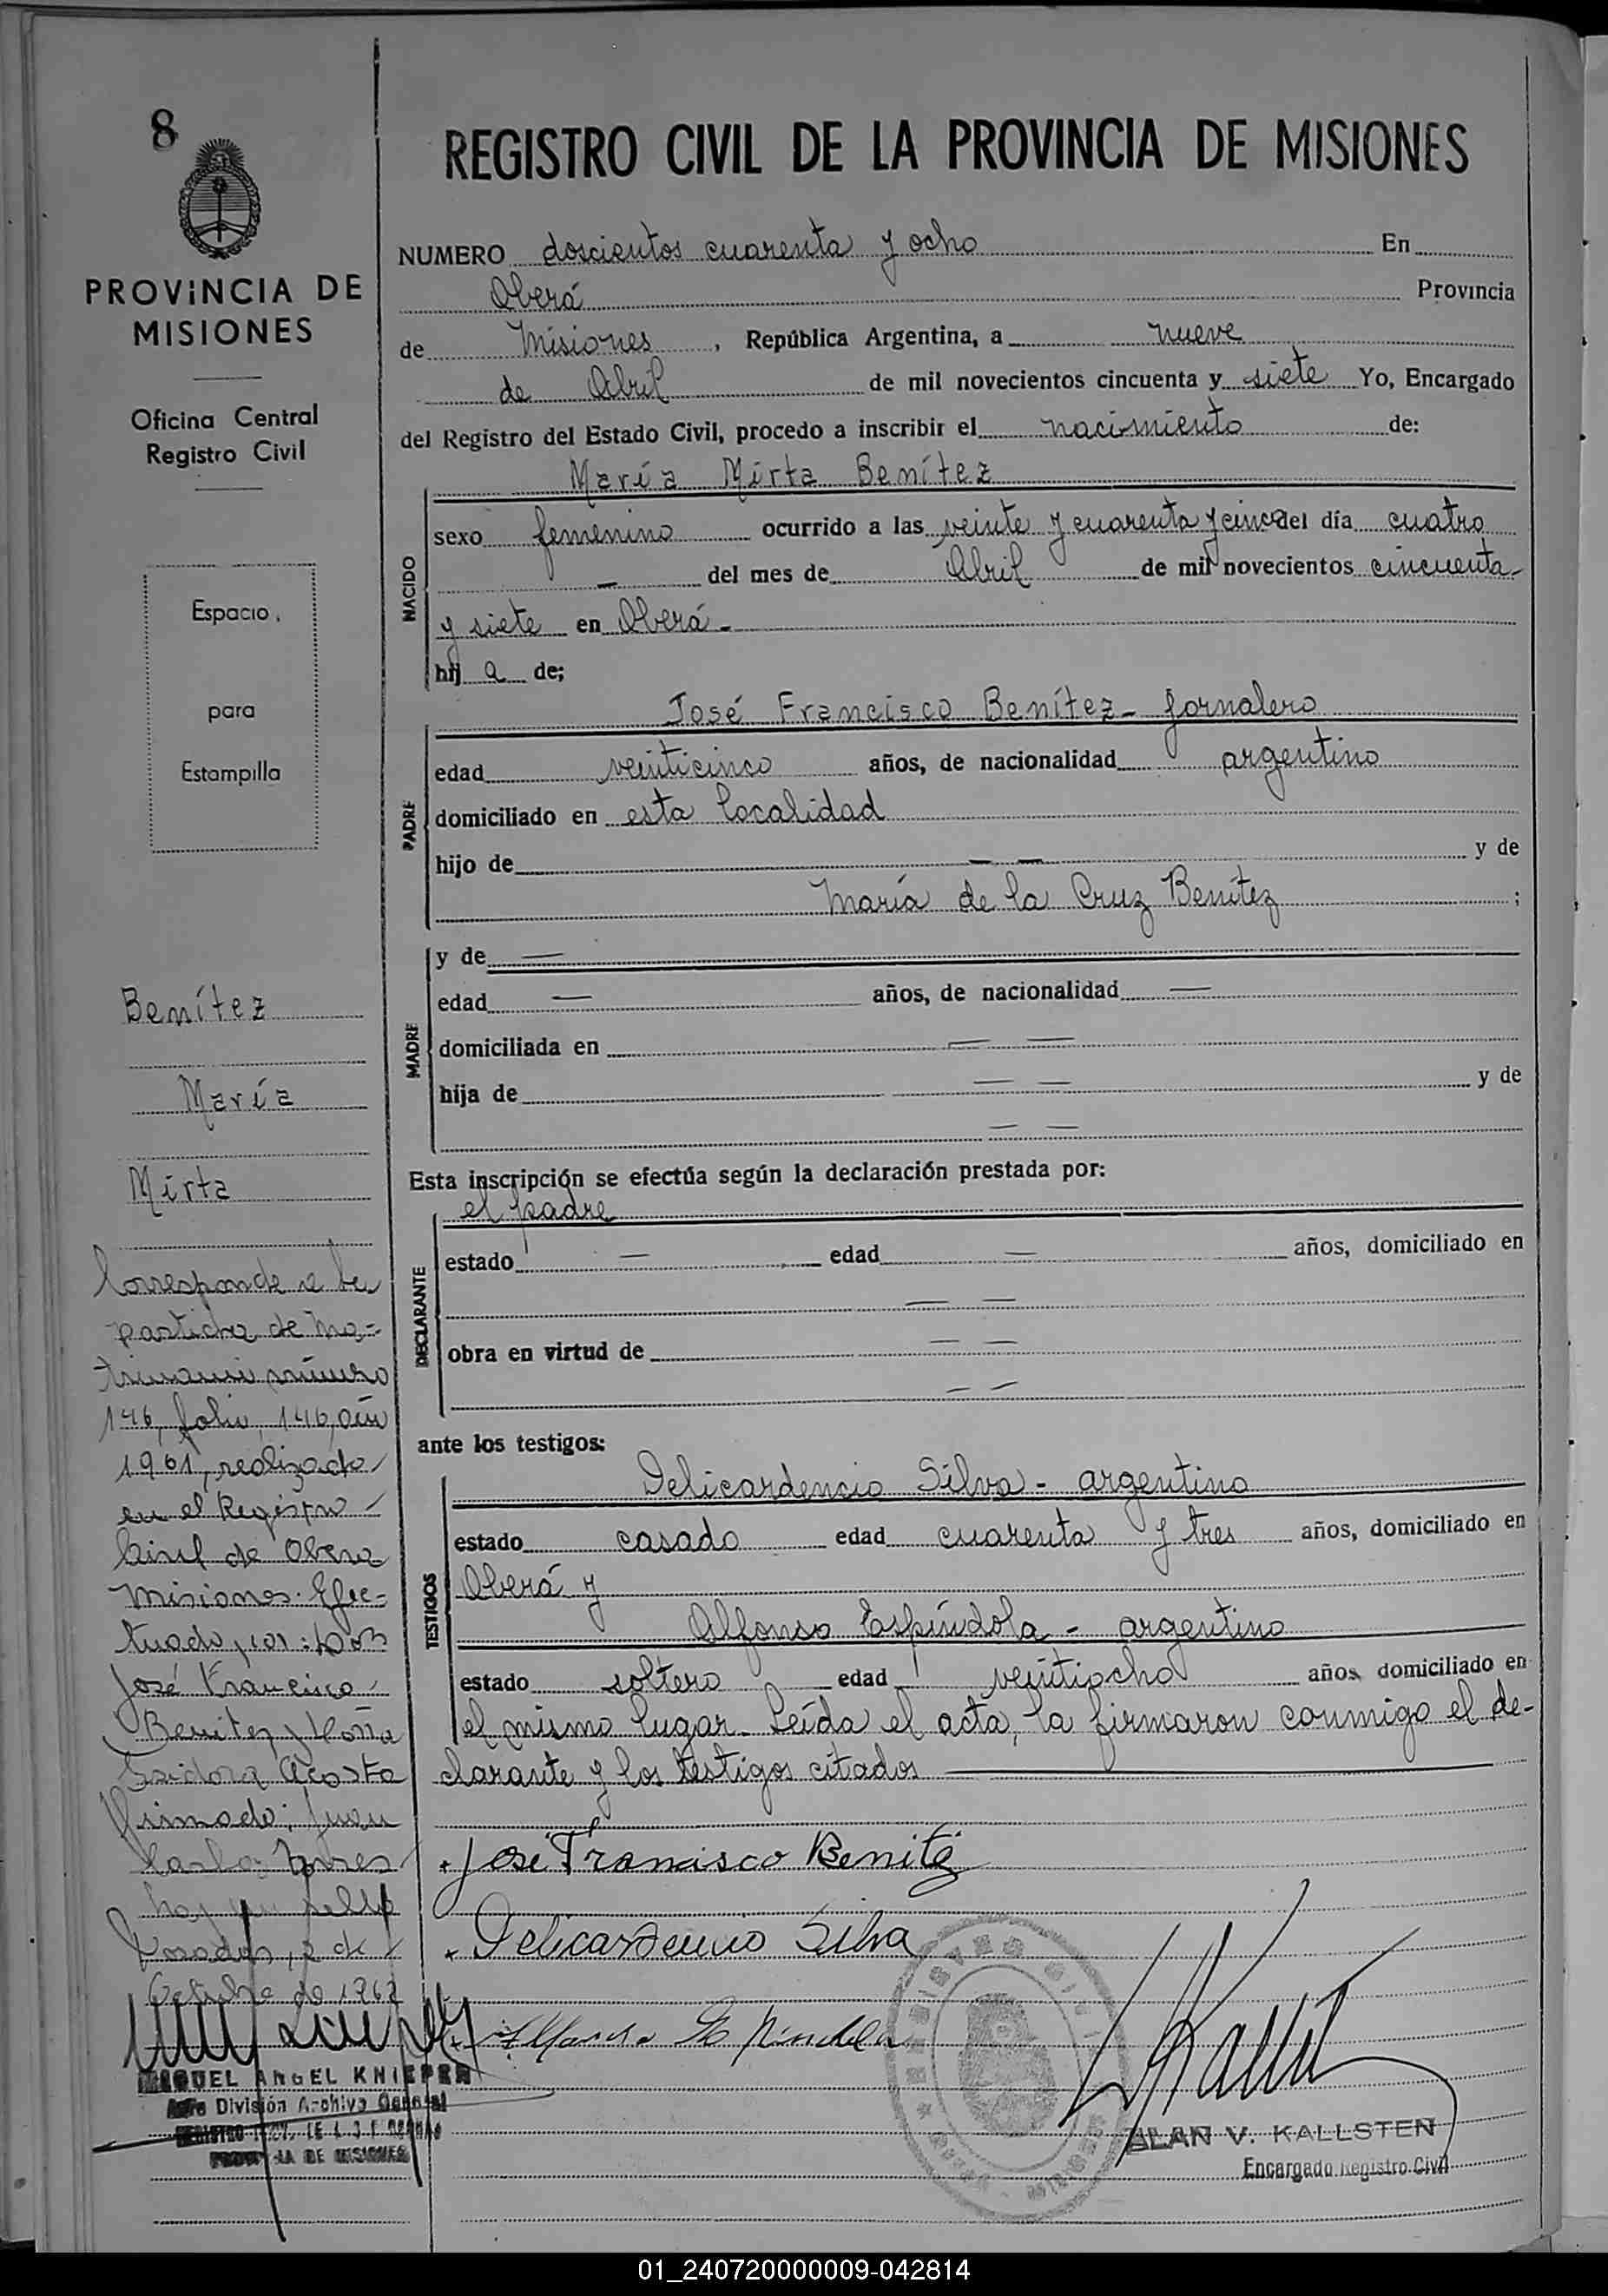 8
PROVINCIA DE
MISIONES
Oficina Central
Registro Civil
Espacio
para
Estampilla
Benítez
María
Mirta
Corresponde a la
partida de Ma=
trimonio número
146, folio, 146, año
1961, realizado
en el Registro
Civil de Oberá
Misiones. Efec=
tuado por: Don
José Francisco
Benitez y Doña
Isidora Acosta
Firmado: Juan
Carlos Torres
hay un sello
Posadas, 2 de
Octubre de 1962
MIGUEL ANGEL KNIEPER
Jefe División Archivo General
PROVINCIA DE MISIONES
REGISTRO CIVIL DE LA PROVINCIA DE MISIONES
NUMERO doscientos cuarenta y ocho En
Oberá Provincia
de Misiones, República Argentina, a nueve
de Abril de mil novecientos cincuenta y siete Yo, Encargado
del Registro del Estado Civil, procedo a inscribir el nacimiento de:
María Mirta Benítez
NACIDO
sexo femenino ocurrido a las veinte y cuarenta y cinco del día cuatro
— del mes de Abril de mil novecientos cincuenta
y siete en Oberá.-
hij a de;
José Francisco Benítez - jornalero
PADRE
edad veinticinco años, de nacionalidad argentino
domiciliado en esta localidad
hijo de — — y de
María de la Cruz Benítez ;
MADRE
y de —
edad — años, de nacionalidad —
domiciliada en — —
hija de — — y de
— —
Esta inscripción se efectúa según la declaración prestada por:
el padre
DECLARANTE
estado — edad — años, domiciliado en
— —
obra en virtud de — —
— —
ante los testigos:
Delicardencio Silva - argentino
TESTIGOS
estado casado edad cuarenta y tres años, domiciliado en
Oberá y
Alfonso Espíndola - argentino
estado soltero edad veintiocho años domiciliado en
el mismo lugar. Leída el acta, la firmaron conmigo el de-
clarante y los testigos citados
José Francisco Benitez
Delicardencio Silva
ALAN V. KALLSTEN
Encargado Registro Civil
01_240720000009-042814